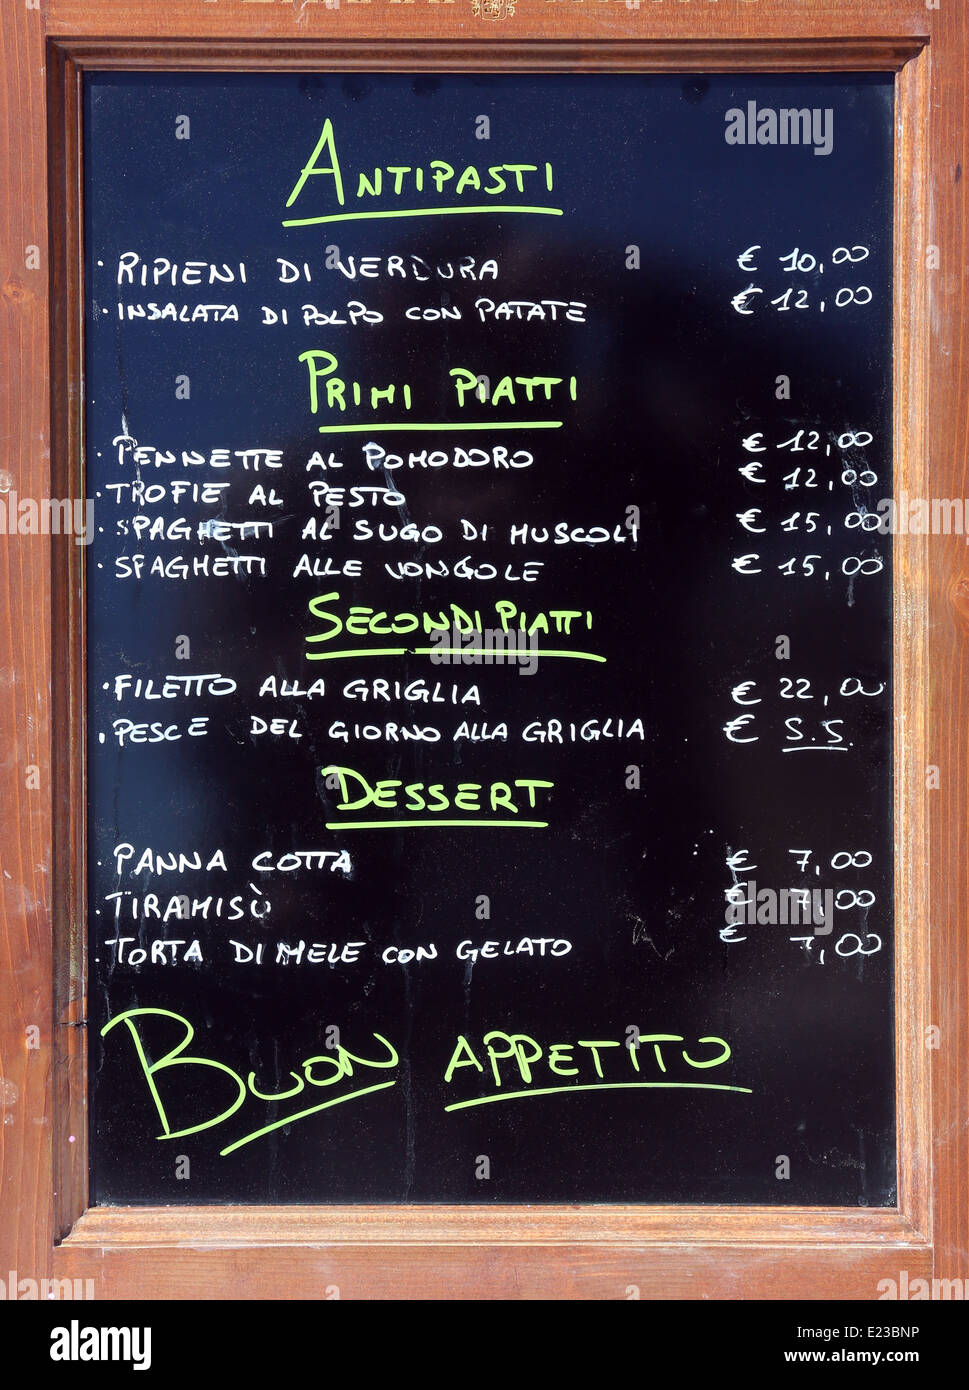 ANTIPASTI
· RIPIENI DI VERDURA € 10,00
· INSALATA DI POLPO CON PATATE € 12,00
PRIMI PIATTI
· PENNETTE AL POMODORO € 12,00
· TROFIE AL PESTO € 12,00
· SPAGHETTI AL SUGO DI MUSCOLI € 15,00
· SPAGHETTI ALLE VONGOLE € 15,00
SECONDI PIATTI
· FILETTO ALLA GRIGLIA € 22,00
· PESCE DEL GIORNO ALLA GRIGLIA € S.S.
DESSERT
· PANNA COTTA € 7,00
· TIRAMISÙ € 7,00
· TORTA DI MELE CON GELATO € 7,00
BUON APPETITO
alamy
Image ID: E23BNP
www.alamy.com